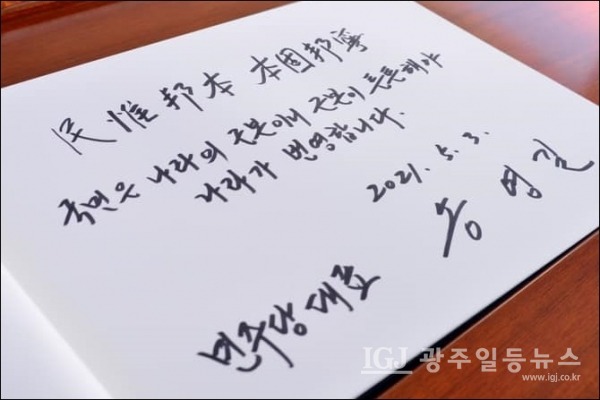 民惟邦本 本固邦寧
국민은 나라의 근본이니 근본이 튼튼해야
나라가 번영합니다.
2021. 5. 3.
민주당 대표
송영길
IGJ 광주일등뉴스
www.igj.co.kr